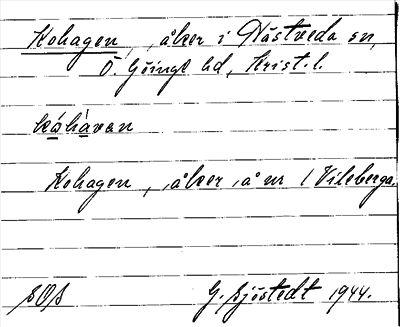 Kohagen, åker i Nåstveda sn,
Ö. Göinge hd, Krist. l.
kåhåvan
Kohagen, åker å nr 1 Vileberga.
SOS G. Sjöstedt 1944.